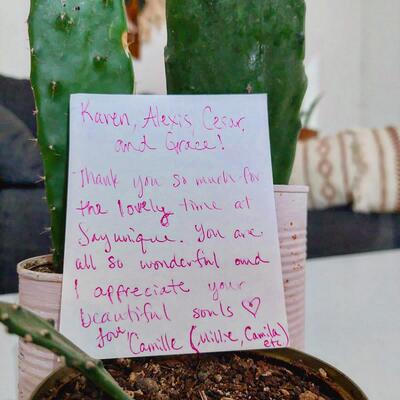 Karen, Alexis, Cesar,
and Grace!
Thank you so much for
the lovely time at
Sayunique. You are
all so wonderful and
I appreciate your
beautiful souls ♡
Love
Camille (Millie, Camila,
etc)